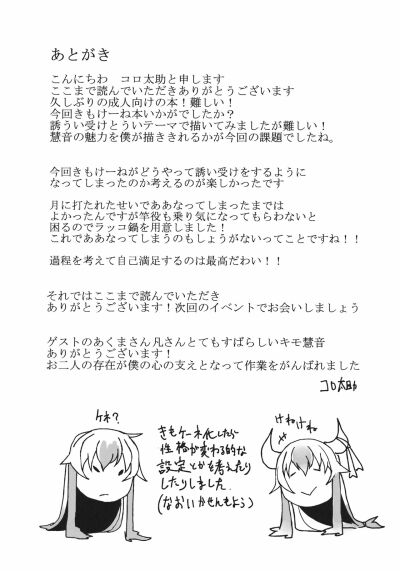 あとがき
こんにちわ　コロ太助と申します
ここまで読んでいただきありがとうございます
久しぶりの成人向けの本！難しい！
今回きもけーね本いかがでしたか？
誘うい受けとういテーマで描いてみましたが難しい！
慧音の魅力を僕が描ききれるかが今回の課題でしたね。
今回きもけーねがどうやって誘い受けをするように
なってしまったのか考えるのが楽しかったです
月に打たれたせいでああなってしまったまでは
よかったんですが竿役も乗り気になってもらわないと
困るのでラッコ鍋を用意しました！
これでああなってしまうのもしょうがないってことですね！！
過程を考えて自己満足するのは最高だわい！！
それではここまで読んでいただき
ありがとうございます！次回のイベントでお会いしましょう
ゲストのあくまさん凡さんとてもすばらしいキモ慧音
ありがとうございます！
お二人の存在が僕の心の支えとなって作業をがんばれました
コロ太助
ケネ？
きもケーネ化したら
性格が変わる的な
設定とか考えたり
したりしました
(なおいかせんもよう)
けねけね